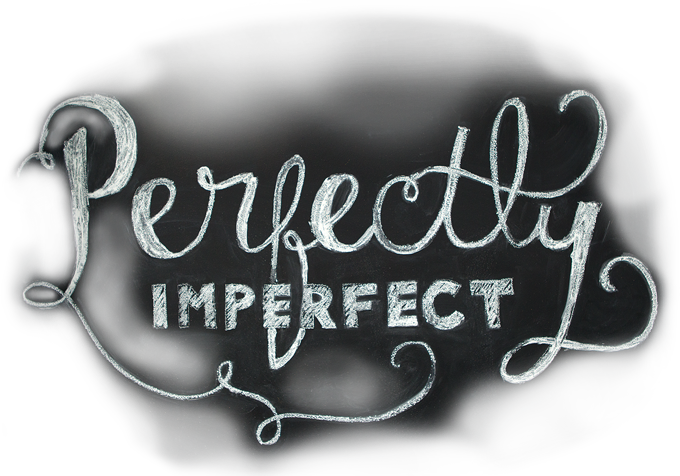 Perfectly
IMPERFECT